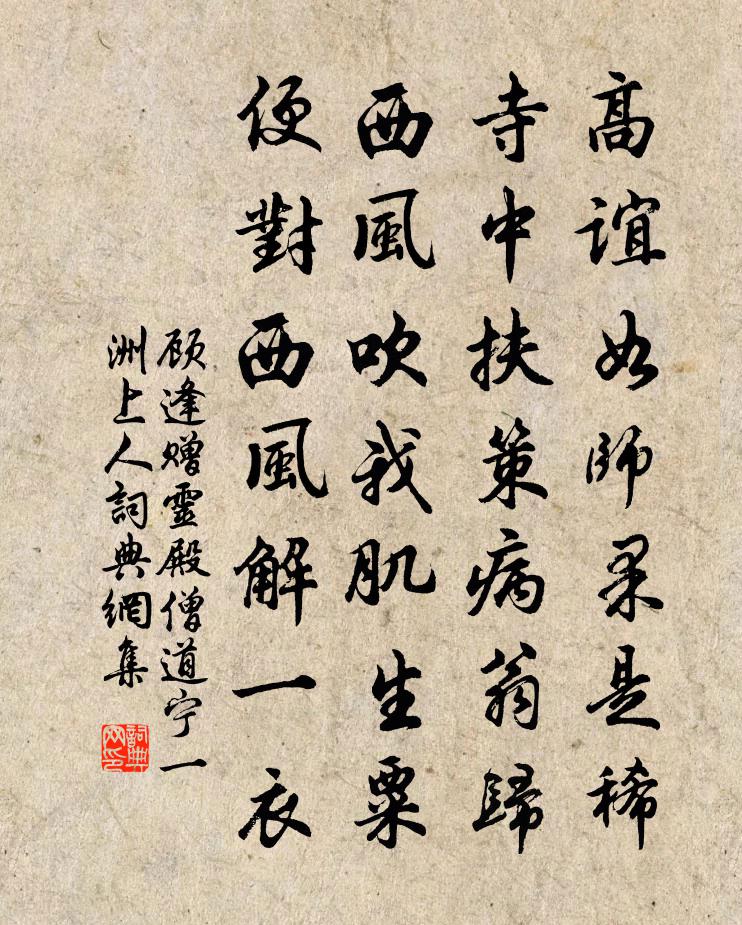 高誼如師果是稀
寺中扶策病翁歸
西風吹我肌生粟
便對西風解一衣
顾逢赠靈殿僧道宁一
洲上人詞典網集
詞典网印